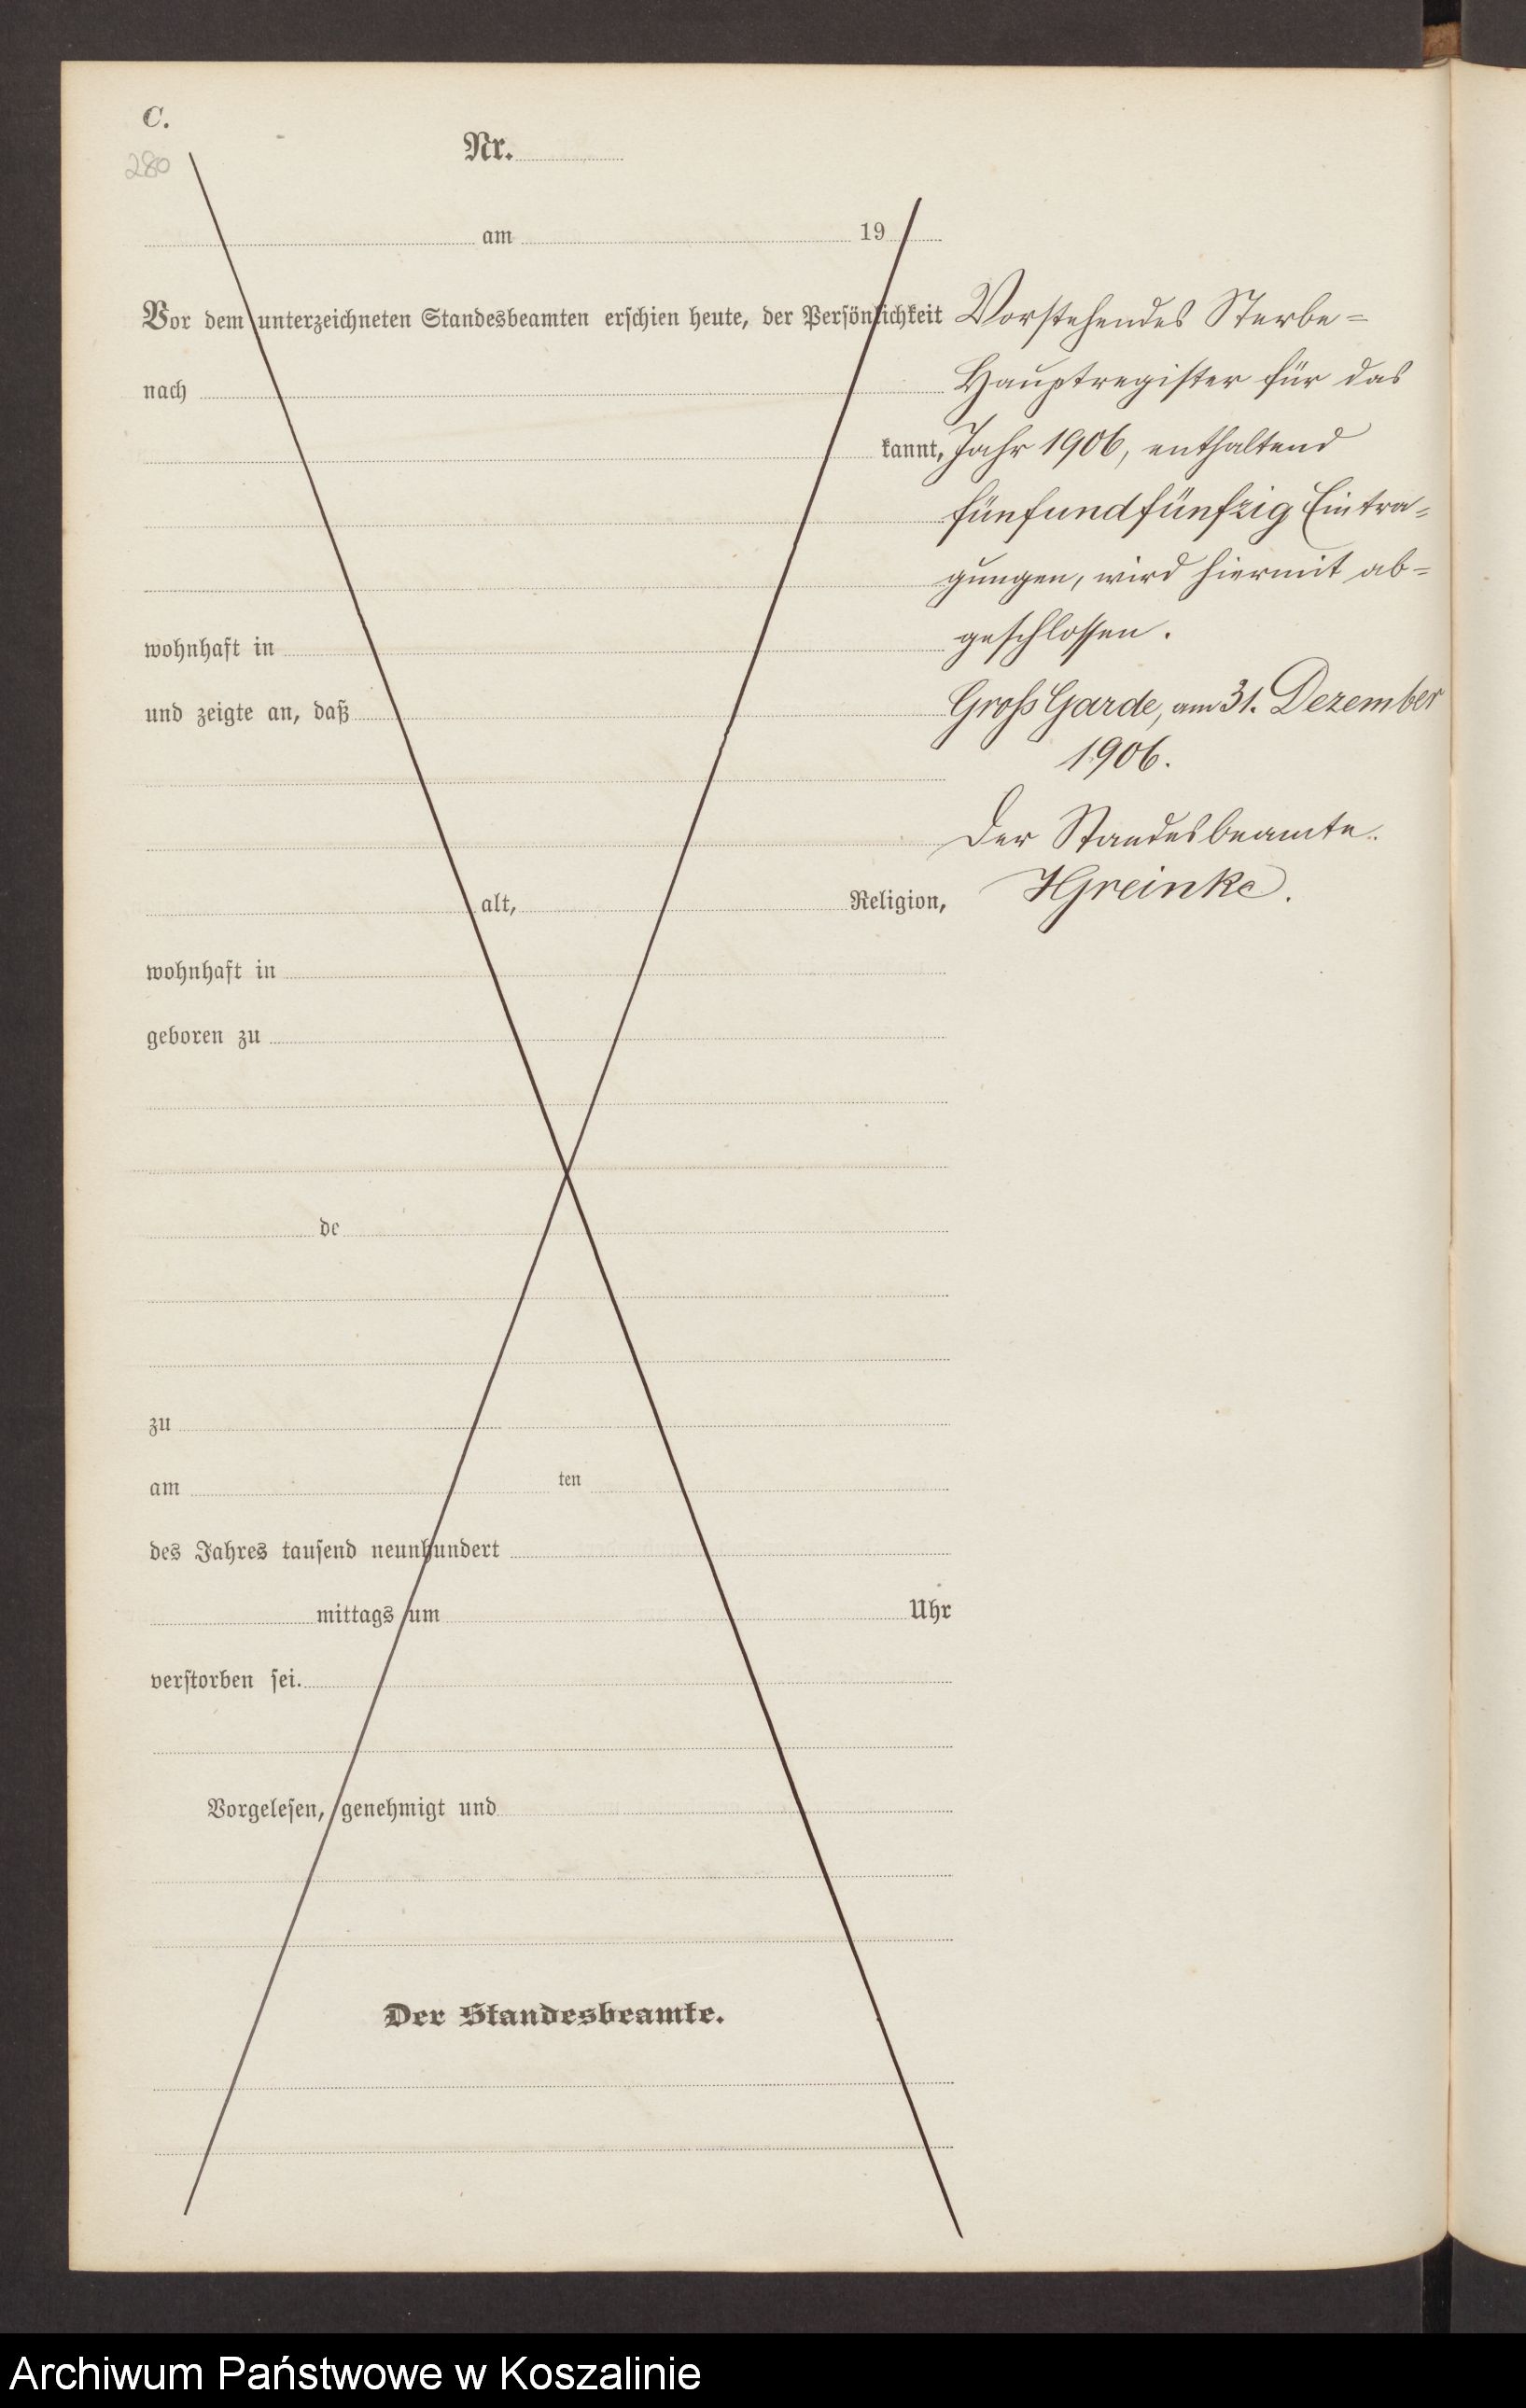 C.
280
Nr.
am 19
Vor dem unterzeichneten Standesbeamten erschien heute, der Persönlichkeit
nach
kannt,
wohnhaft in
und zeigte an, daß
alt, Religion,
wohnhaft in
geboren zu
de
zu
am ten
des Jahres tausend neunhundert
mittags um Uhr
verstorben sei.
Vorgelesen, genehmigt und
Der Standesbeamte.
Vorstehendes Sterbe=
Hauptregister für das
Jahr 1906, enthaltend
fünfundfünfzig Eintra=
gungen, wird hiermit ab=
geschlossen.
Gross Garde, am 31. Dezember
1906.
Der Standesbeamte.
HGreinke.
Archiwum Państwowe w Koszalinie